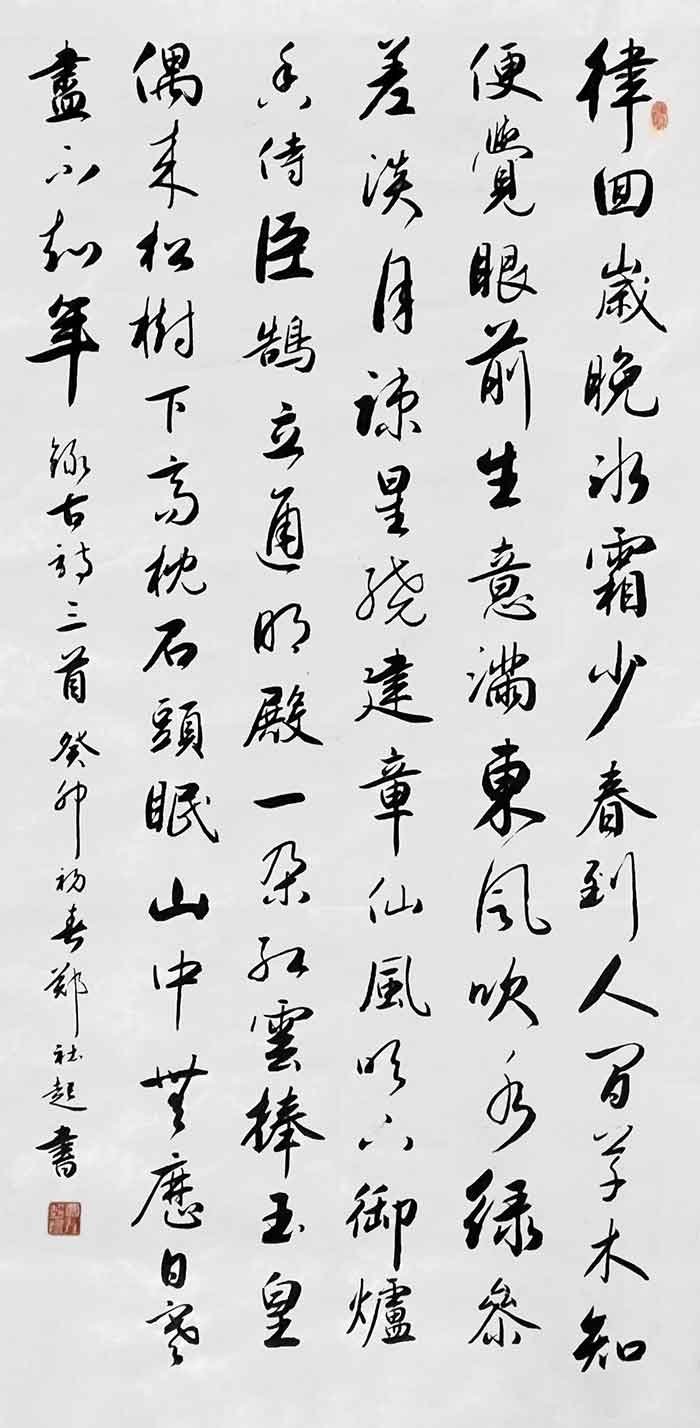 律回歲晚冰霜少春到人間草木知
便覺眼前生意滿東風吹水綠參
差淡月疎星繞建章仙風吹下御爐
香侍臣鵠立通明殿一朵紅雲捧玉皇
偶来松樹下高枕石頭眠山中無曆日寒
盡不知年 錄古詩三首癸卯初春鄭社起書